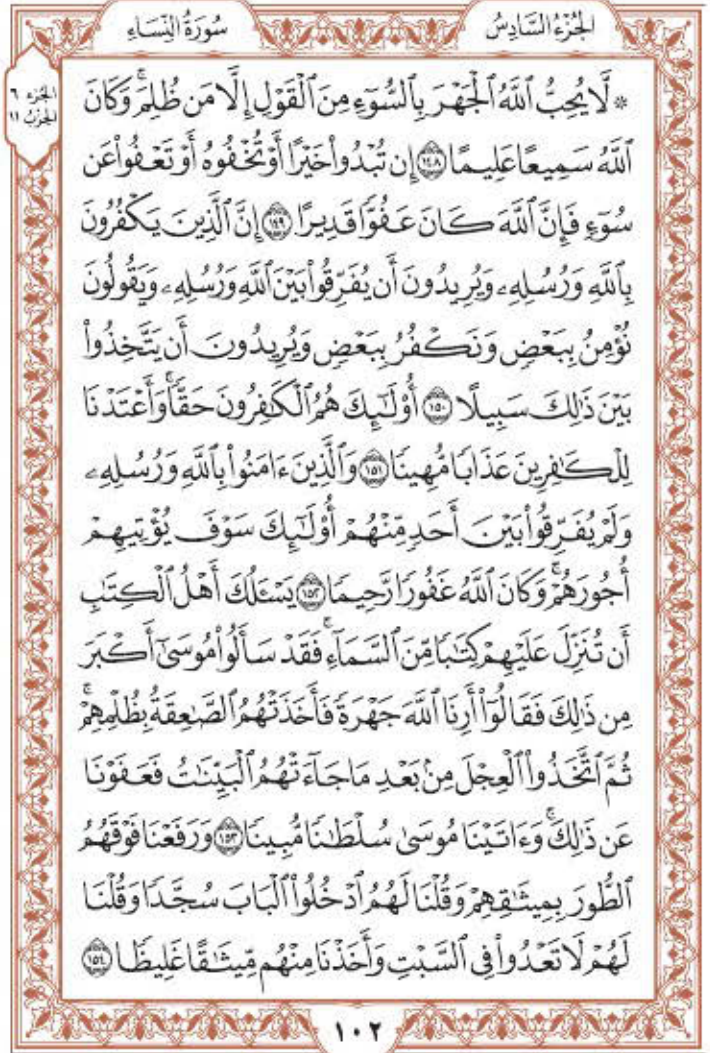 سُورَةُ النِّسَاءِ
الجُزْءُ السَّادِسُ
الجزء ٦
الحزب ١١
۞ لَّا يُحِبُّ ٱللَّهُ ٱلْجَهْرَ بِٱلسُّوٓءِ مِنَ ٱلْقَوْلِ إِلَّا مَن ظُلِمَۚ وَكَانَ
ٱللَّهُ سَمِيعًا عَلِيمًا ١٤٨ إِن تُبْدُوا۟ خَيْرًا أَوْ تُخْفُوهُ أَوْ تَعْفُوا۟ عَن
سُوٓءٍ فَإِنَّ ٱللَّهَ كَانَ عَفُوًّا قَدِيرًا ١٤٩ إِنَّ ٱلَّذِينَ يَكْفُرُونَ
بِٱللَّهِ وَرُسُلِهِۦ وَيُرِيدُونَ أَن يُفَرِّقُوا۟ بَيْنَ ٱللَّهِ وَرُسُلِهِۦ وَيَقُولُونَ
نُؤْمِنُ بِبَعْضٍ وَنَكْفُرُ بِبَعْضٍ وَيُرِيدُونَ أَن يَتَّخِذُوا۟
بَيْنَ ذَٰلِكَ سَبِيلًا ١٥٠ أُو۟لَٰٓئِكَ هُمُ ٱلْكَٰفِرُونَ حَقًّاۚ وَأَعْتَدْنَا
لِلْكَٰفِرِينَ عَذَابًا مُّهِينًا ١٥١ وَٱلَّذِينَ ءَامَنُوا۟ بِٱللَّهِ وَرُسُلِهِۦ
وَلَمْ يُفَرِّقُوا۟ بَيْنَ أَحَدٍ مِّنْهُمْ أُو۟لَٰٓئِكَ سَوْفَ يُؤْتِيهِمْ
أُجُورَهُمْۗ وَكَانَ ٱللَّهُ غَفُورًا رَّحِيمًا ١٥٢ يَسْـَٔلُكَ أَهْلُ ٱلْكِتَٰبِ
أَن تُنَزِّلَ عَلَيْهِمْ كِتَٰبًا مِّنَ ٱلسَّمَآءِۚ فَقَدْ سَأَلُوا۟ مُوسَىٰٓ أَكْبَرَ
مِن ذَٰلِكَ فَقَالُوٓا۟ أَرِنَا ٱللَّهَ جَهْرَةً فَأَخَذَتْهُمُ ٱلصَّٰعِقَةُ بِظُلْمِهِمْۚ
ثُمَّ ٱتَّخَذُوا۟ ٱلْعِجْلَ مِنۢ بَعْدِ مَا جَآءَتْهُمُ ٱلْبَيِّنَٰتُ فَعَفَوْنَا
عَن ذَٰلِكَۚ وَءَاتَيْنَا مُوسَىٰ سُلْطَٰنًا مُّبِينًا ١٥٣ وَرَفَعْنَا فَوْقَهُمُ
ٱلطُّورَ بِمِيثَٰقِهِمْ وَقُلْنَا لَهُمُ ٱدْخُلُوا۟ ٱلْبَابَ سُجَّدًا وَقُلْنَا
لَهُمْ لَا تَعْدُوا۟ فِى ٱلسَّبْتِ وَأَخَذْنَا مِنْهُم مِّيثَٰقًا غَلِيظًا ١٥٤
١٠٢